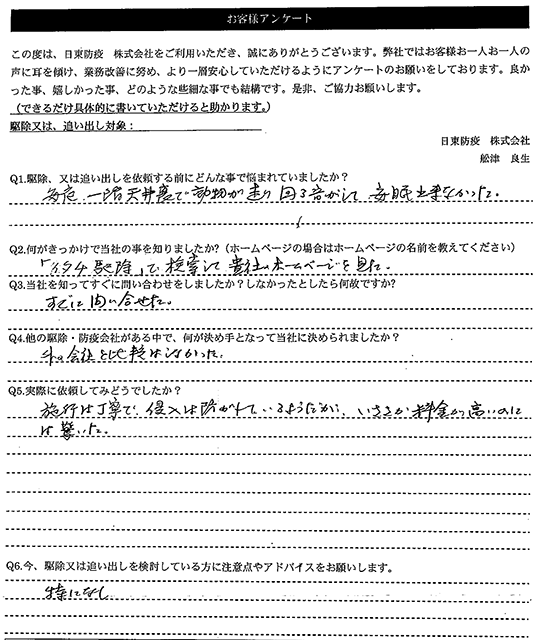 お客様アンケート
この度は、日東防疫　株式会社をご利用いただき、誠にありがとうございます。弊社ではお客様お一人お一人の
声に耳を傾け、業務改善に努め、より一層安心していただけるようにアンケートのお願いをしております。良か
った事、嬉しかった事、どのような些細な事でも結構です。是非、ご協力お願いします。
（できるだけ具体的に書いていただけると助かります。）
駆除又は、追い出し対象：
日東防疫　株式会社
舩津　良生
Q1.駆除、又は追い出しを依頼する前にどんな事で悩まれていましたか？
毎夜、一階天井裏で動物が走り回る音がして安眠出来なかった。
Q2.何がきっかけで当社の事を知りましたか？（ホームページの場合はホームページの名前を教えてください）
「イタチ駆除」で検索して貴社のホームページを見た。
Q3.当社を知ってすぐに問い合わせをしましたか？しなかったとしたら何故ですか？
すぐに問い合せた。
Q4.他の駆除・防疫会社がある中で、何が決め手となって当社に決められましたか？
他の会社と比較はしなかった。
Q5.実際に依頼してみどうでしたか？
施行は丁寧で、侵入は防がれているようだが、いささか料金が高いのに
は驚いた。
Q6.今、駆除又は追い出しを検討している方に注意点やアドバイスをお願いします。
特になし